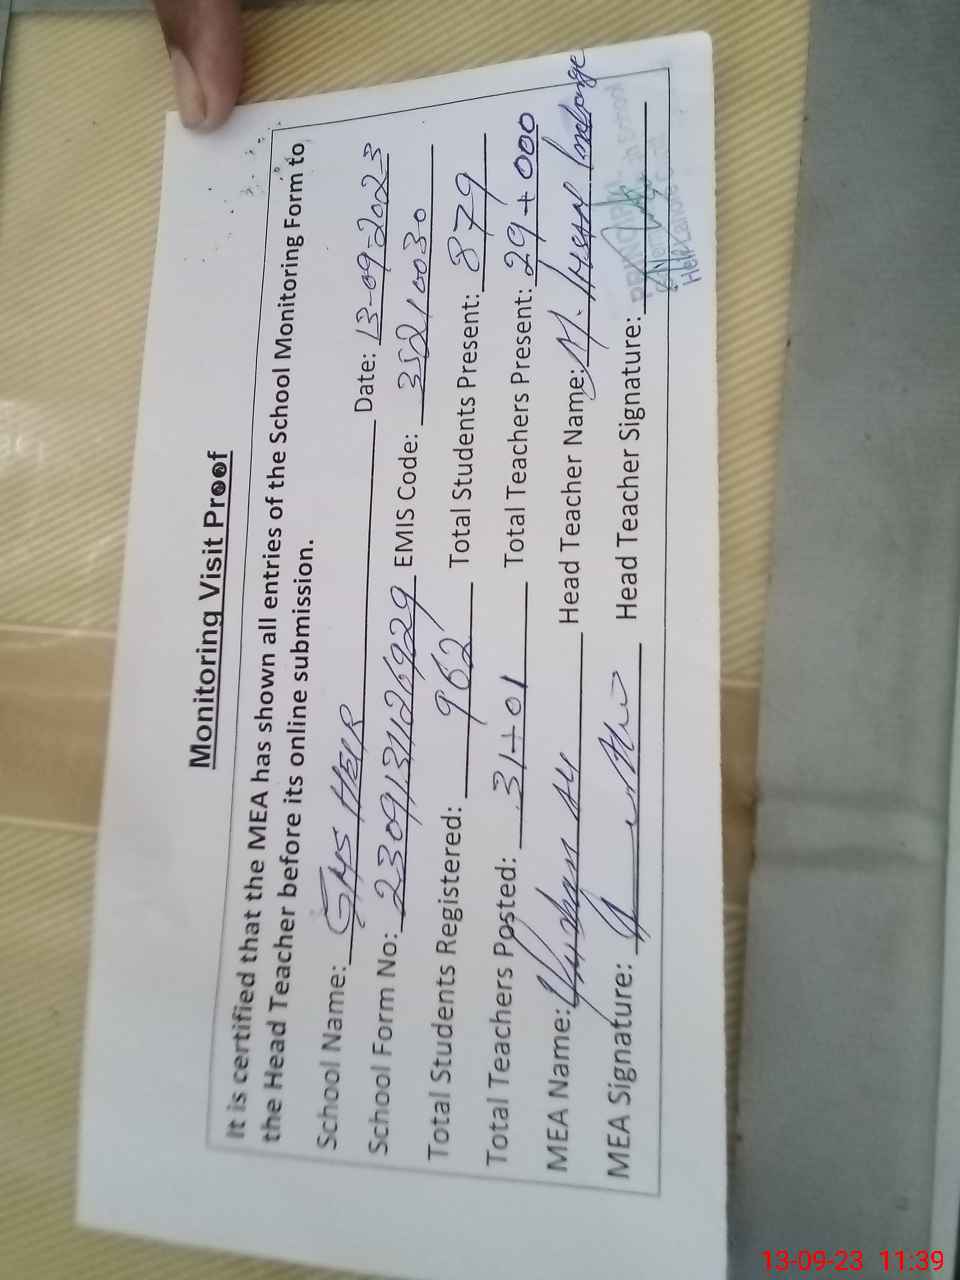 Monitoring Visit Proof
It is certified that the MEA has shown all entries of the School Monitoring Form to
the Head Teacher before its online submission.
School Name: GHS HEIR Date: 13-09-2023
School Form No: 2309131126929 EMIS Code: 35210030
Total Students Registered: 962 Total Students Present: 879
Total Teachers Posted: 31+01 Total Teachers Present: 29+000
MEA Name: Head Teacher Name: M.
MEA Signature: Head Teacher Signature:
PRINCIPAL
13-09-23 11:39